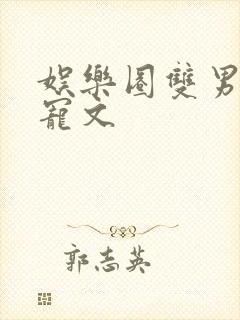 娛樂圈雙男
寵文
郭志英